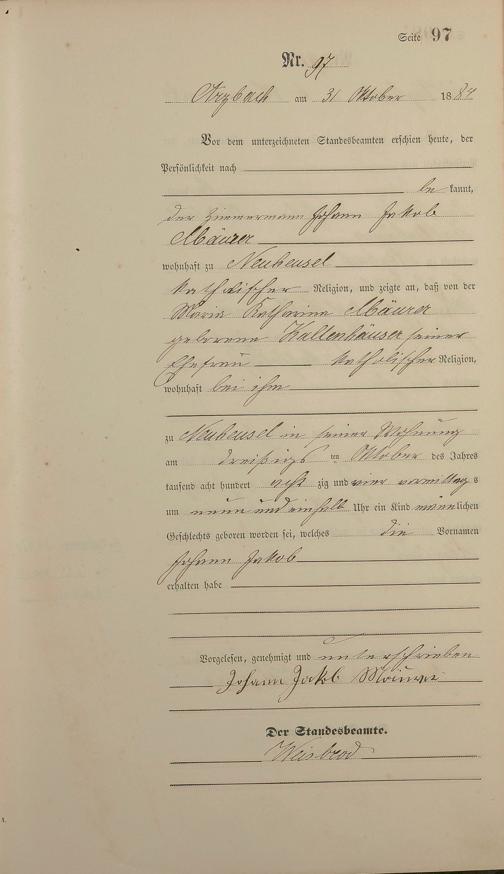 Seite 97
Nr. 97
Arzbach am 31 Oktober 1884
Vor dem unterzeichneten Standesbeamten erschien heute, der
Persönlichkeit nach
be kannt,
der Zimmermann Johann Jakob
Mäurer
wohnhaft zu Neuheusel
katholischer Religion, und zeigte an, daß von der
Maria Katharina Mäurer
geborene Kallenhäuser seiner
Ehefrau katholischer Religion,
wohnhaft bei ihm
zu Neuheusel in seiner Wohnung
am dreißigs ten Oktober des Jahres
tausend acht hundert acht zig und vier vormittag s
um neun und einhalb Uhr ein Kind männlichen
Geschlechts geboren worden sei, welches die Vornamen
Johann Jakob
erhalten habe
Vorgelesen, genehmigt und unterschrieben
Johann Jakob Mäurer
Der Standesbeamte.
Weisbrod